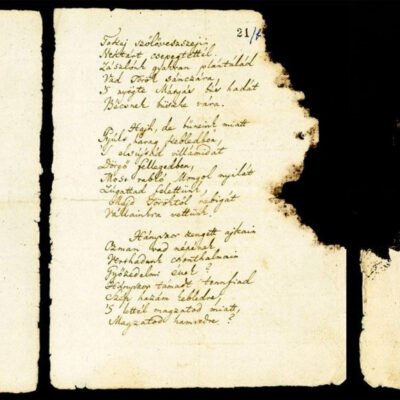 21/
Tokaj szőlővesszein
Nektárt csepegtettél.
Zászlónk gyakran plántálád
Vad Török sánczára,
'S nyögte Mátyás bús hadát
Bécsnek büszke vára.
Hajh, de bűneink miatt
Gyúlt harag kebledben,
'S elsújtád villámidat
Dörgő fellegedben,
Most rabló Mongol nyilát
Zúgattad felettünk,
Majd Töröktől rabigát
Vállainkra vettünk.
Hányszor zengett ajkain
Ozman vad népének
Vert hadunk csonthalmain
Győzedelmi ének?
Hányszor támadt tenfiad
Szép hazám kebledre,
'S lettél magzatod miatt,
Magzatod hamvedre?